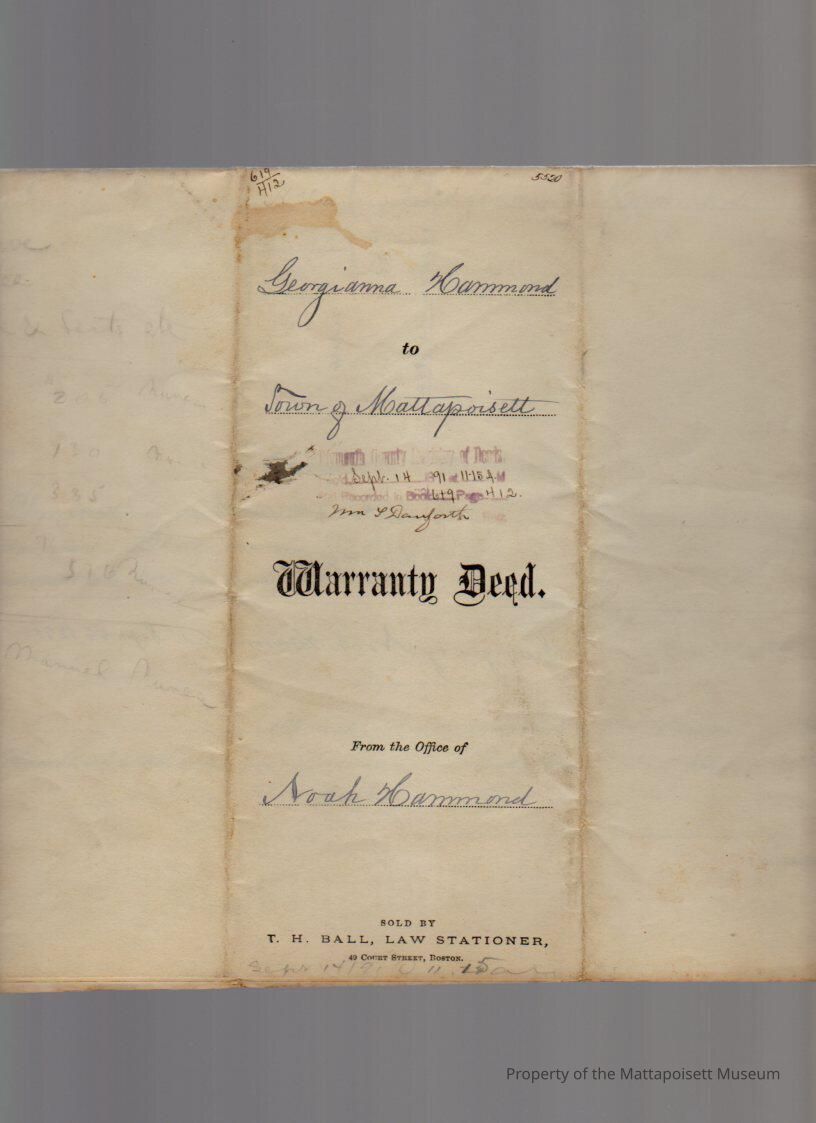 619
412
5520
Georgianna Hammond
to
Town of Mattapoisett
Plymouth County Registry of Deeds.
Sept. 14 1891 at 11-15 A M
and Recorded in Book 619 Page 412.
Wm S Danforth
Warranty Deed.
From the Office of
Noah Hammond
SOLD BY
T. H. BALL, LAW STATIONER,
49 COURT STREET, BOSTON.
Sept 14 11 15 a
206
130
335
Manuel
Property of the Mattapoisett Museum